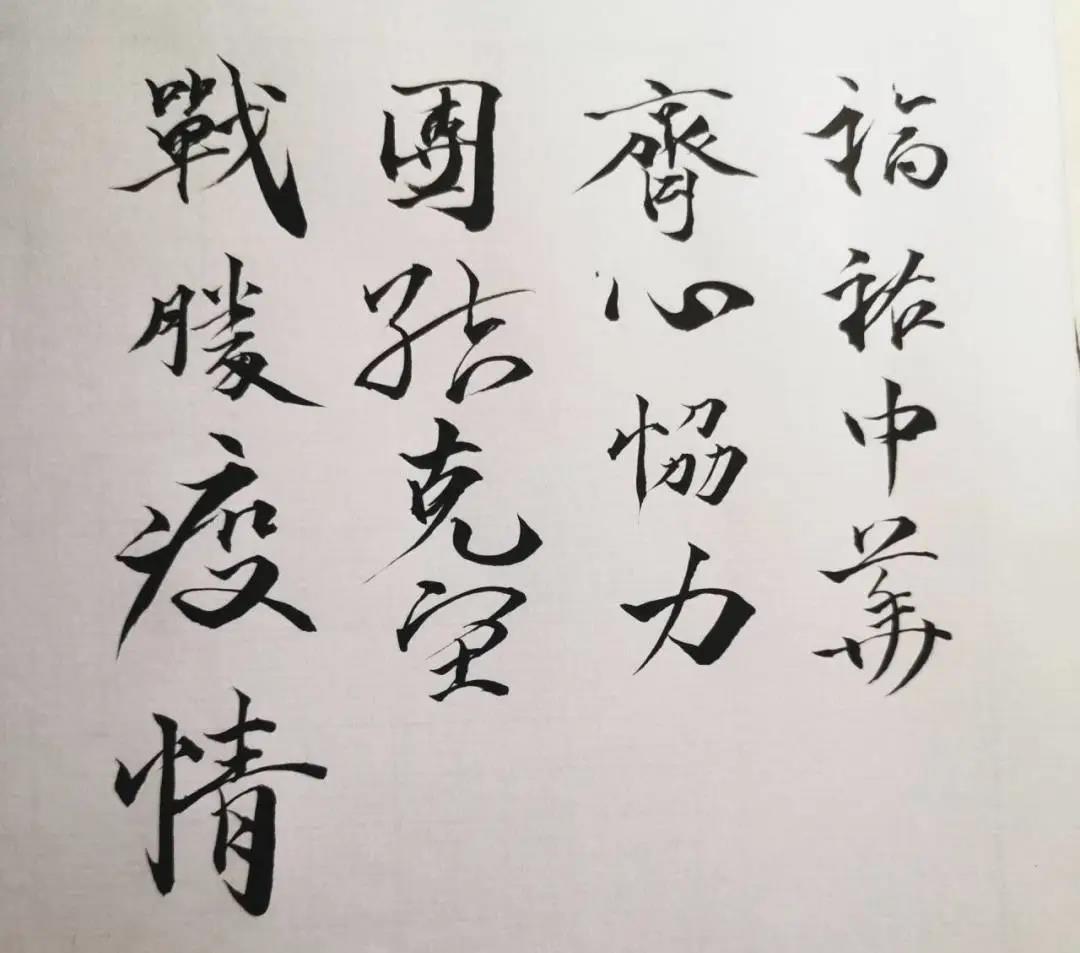 福祐中華
齊心恊力
團結克堅
戰勝疫情